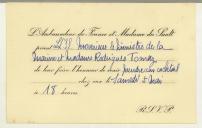 L'Ambassadeur de France et Madame du Sault
prient S.E. Monsieur le Ministre de la
Marine et Madame Rodrigues Tomaz
de leur faire l'honneur de venir prendre un cocktail
chez eux le Samedi
à 18 heures
R.S.V.P.